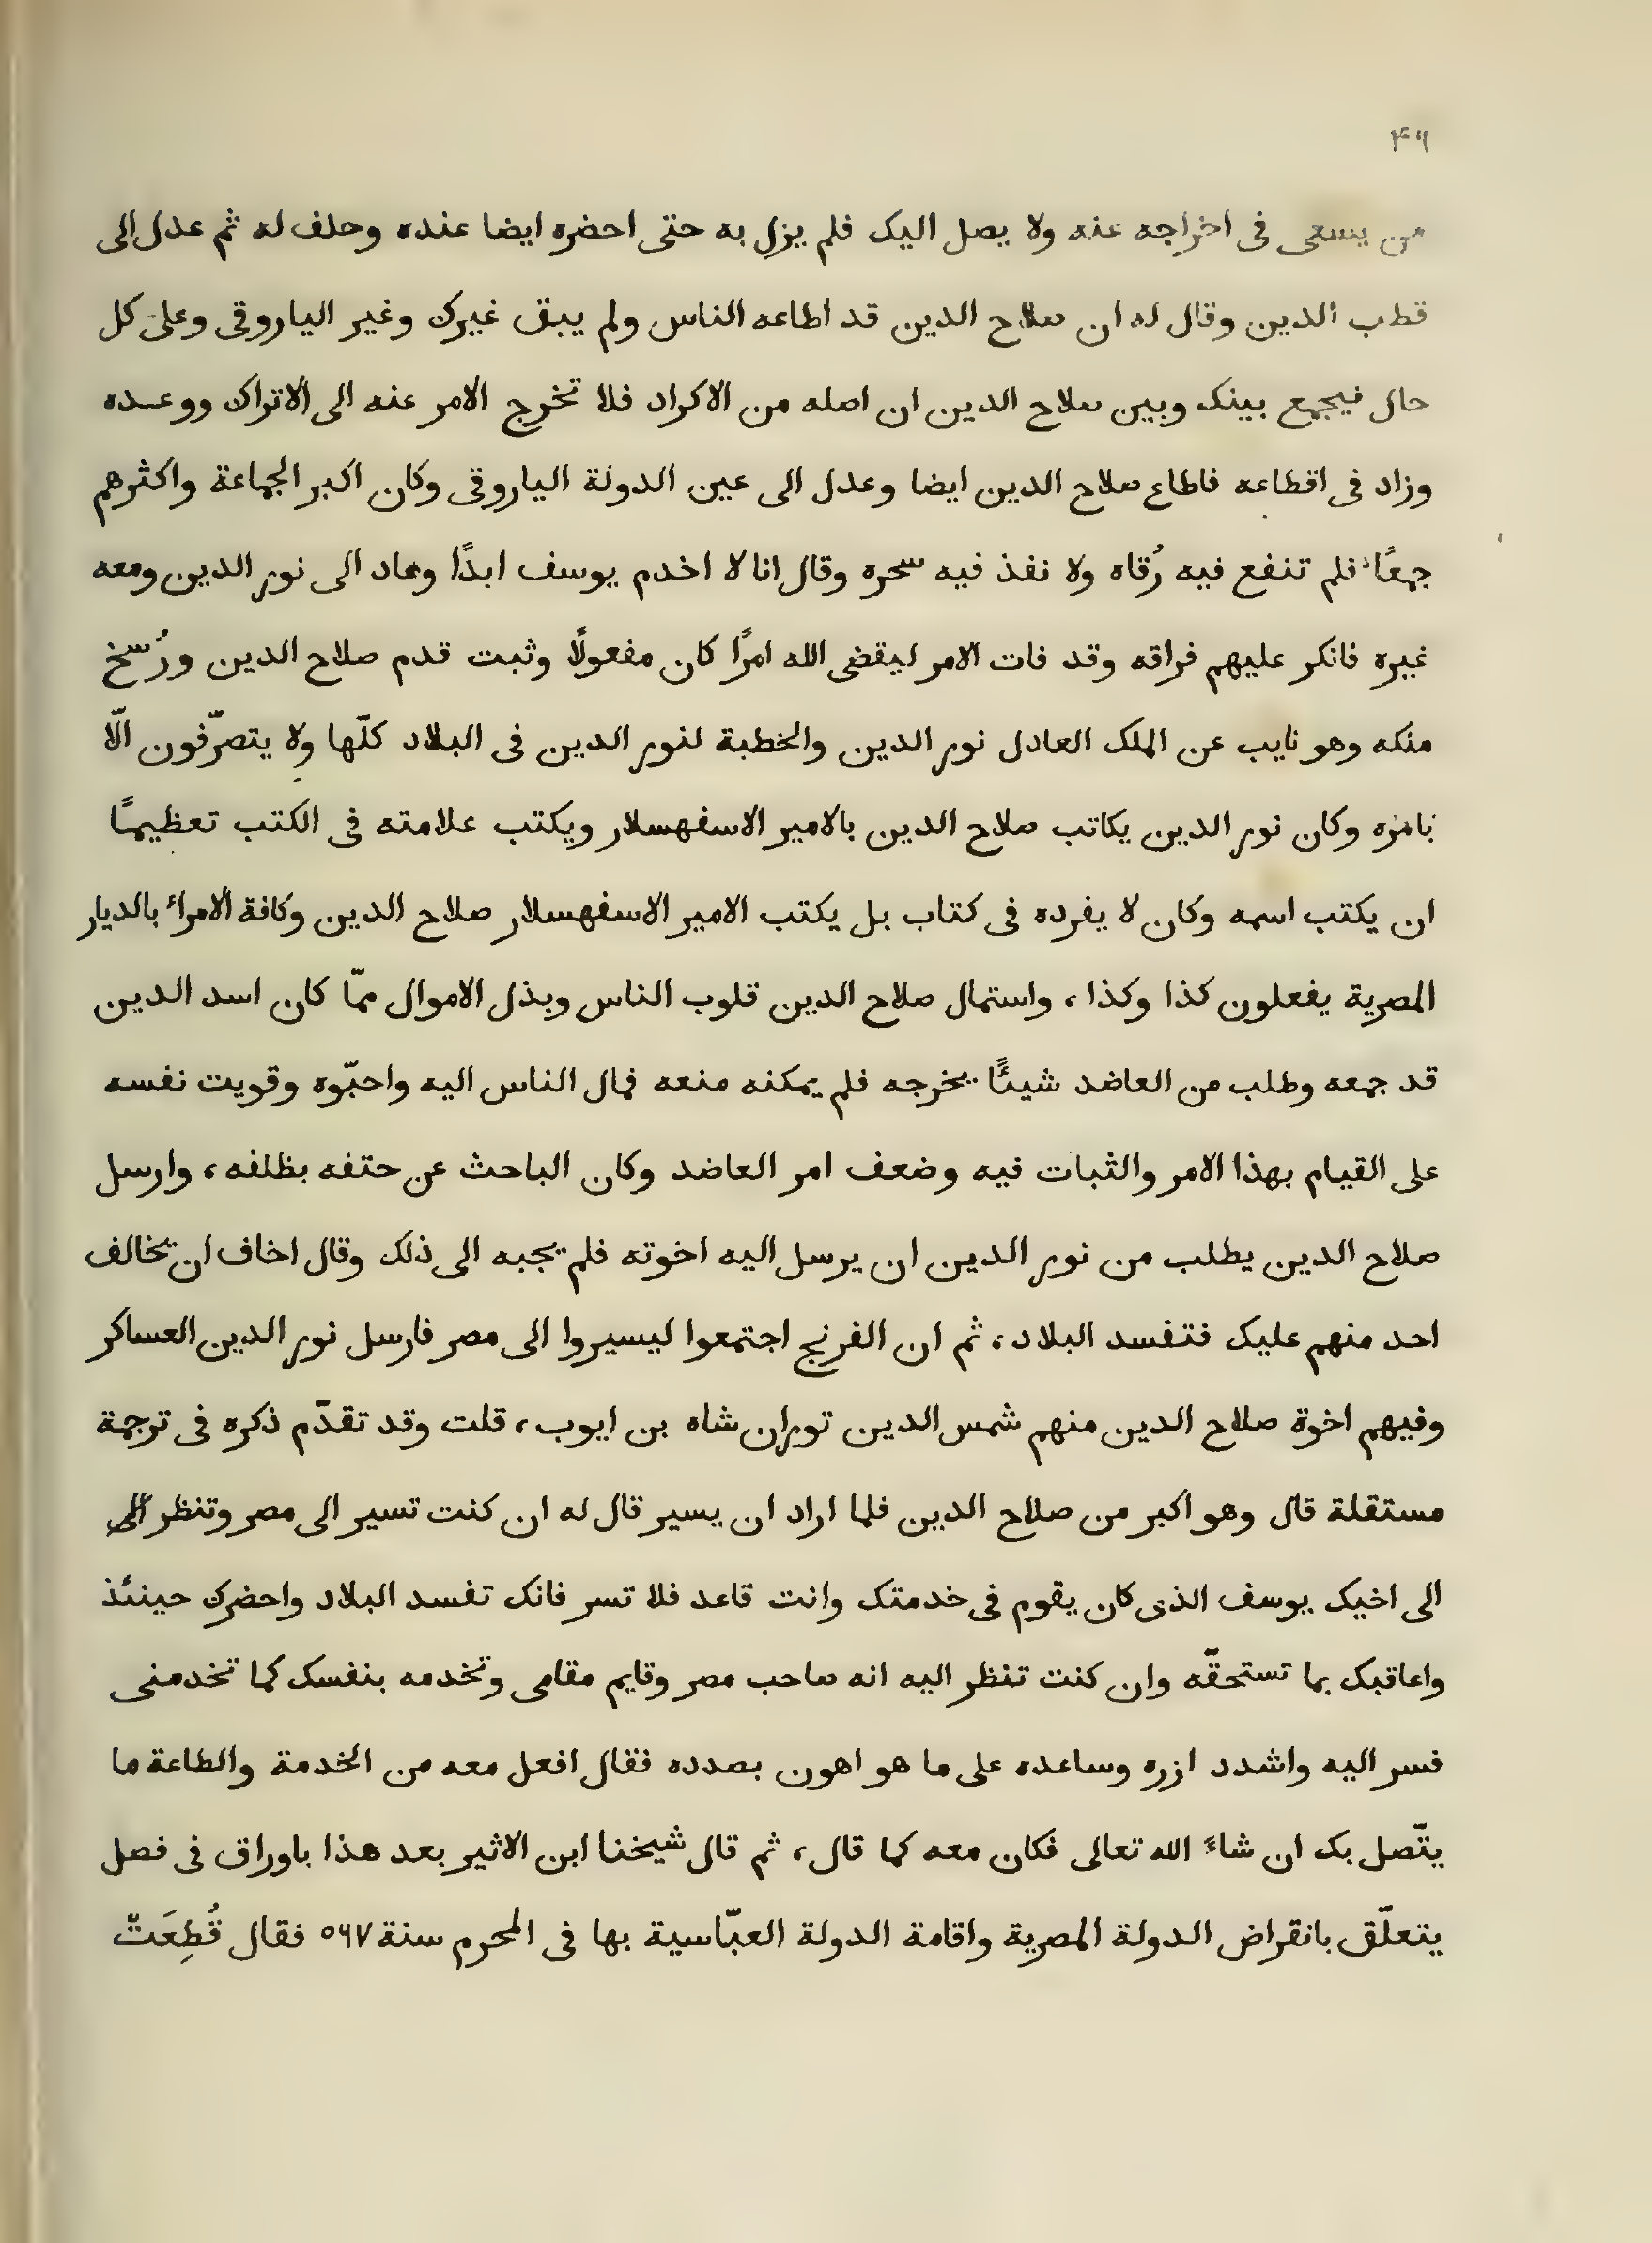 ۴۶
من يسعى فى اخراجه عنه ولا يصل اليك فلم يزل به حتى احضره ايضا عنده وحلف له ثم عدل الى
قطب الدين وقال له ان صلاح الدين قد اطاعه الناس ولم يبق غيرك وغير الياروقى وعلى كل
حال فيجمع بينك وبين صلاح الدين ان اصله من الاكراد فلا تخرج الامر عنه الى الاتراك ووعده
وزاد فى اقطاعه فاطاع صلاح الدين ايضا وعدل الى عين الدولة الياروقى وكان اكبر الجماعة واكثرهم
جمعًا فلم تنفع فيه رُقاه ولا نفذ فيه سحره وقال انا لا اخدم يوسف ابدًا وعاد الى نور الدين ومعه
غيره فانكر عليهم فراقه وقد فات الامر ليقضى الله امرًا كان مفعولًا وثبت قدم صلاح الدين ورُسخ
منكه وهو نايب عن الملك العادل نور الدين والخطبة لنور الدين فى البلاد كلّها ولا يتصرّفون الّا
بامره وكان نور الدين يكاتب صلاح الدين بالامير الاسفهسلار ويكتب علامته فى الكتب تعظيمًا
ان يكتب اسمه وكان لا يفرده فى كتاب بل يكتب الامير الاسفهسلار صلاح الدين وكافة الامراء بالديار
المصرية يفعلون كذا وكذا، واستمال صلاح الدين قلوب الناس وبذل الاموال ممّا كان اسد الدين
قد جمعه وطلب من العاضد شيئًا يخرجه فلم يمكنه منعه فمال الناس اليه واحبّوه وقويت نفسه
على القيام بهذا الامر والثبات فيه وضعف امر العاضد وكان الباحث عن حتفه بظلفه، وارسل
صلاح الدين يطلب من نور الدين ان يرسل اليه اخوته فلم يجبه الى ذلك وقال اخاف ان يخالف
احد منهم عليك فتفسد البلاد، ثم ان الفرنج اجتمعوا ليسيروا الى مصر فارسل نور الدين العساكر
وفيهم اخوة صلاح الدين منهم شمس الدين توران شاه بن ايوب، قلت وقد تقدّم ذكره فى ترجمة
مستقلة قال وهو اكبر من صلاح الدين فلما اراد ان يسير قال له ان كنت تسير الى مصر وتنظر الى
الى اخيك يوسف الذى كان يقوم فى خدمتك وانت قاعد فلا تسر فانك تفسد البلاد واحضرك حينئذ
واعاقبك بما تستحقّه وان كنت تنظر اليه انه صاحب مصر وقايم مقامى وتخدمه بنفسك كما تخدمنى
فسر اليه واشدد ازره وساعده على ما هو اهون بصدده فقال افعل معه من الخدمة والطاعة ما
يتّصل بك ان شاءَ الله تعالى فكان معه كما قال، ثم قال شيخنا ابن الاثير بعد هذا باوراق فى فصل
يتعلّق بانقراض الدولة المصرية واقامة الدولة العبّاسية بها فى المحرم سنة ٥٦٧ فقال قُطِعَتّ